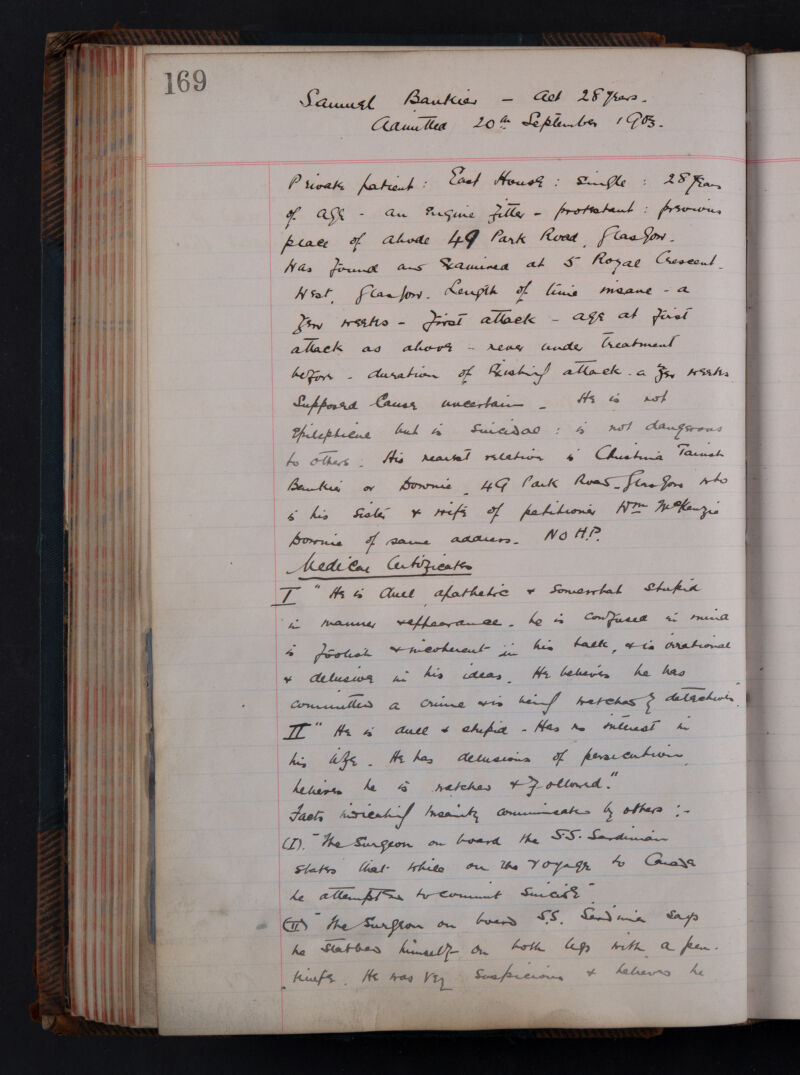 169
Samuel Bankier - aet 28 years.
Admitted 20th September 1903.
Private patient : East House : Single : 28 years
of age - an engine fitter - protestant : previous
place of abode 49 Park Road, Glasgow.
Was found and examined at 5 Royal Crescent
West, Glasgow. Length of time insane - a
few weeks - first attack - age at first
attack as above - never under treatment
before - duration of existing attack - a few weeks
Supposed Cause uncertain - He is not
epileptic but is Suicidal : is not dangerous
to others. His nearest relation is Christina
Bankier or Downie, 49 Park Road, Glasgow who
is his Sister & wife of petitioner Wm McKenzie
Downie of same address. No H.P.
Medical Certificates
I " He is dull apathetic & somewhat stupid
in manner & appearance. he is confused in mind
is foolish & incoherent in his talk, & is irrational
& delusive in his ideas. He believes he has
committed a crime & is being watched by detectives"
II " He is dull & stupid - Has no interest in
his life. He has delusions of persecution
believes he is watched & followed."
Facts indicating Insanity communicated by others :-
(I). "The Surgeon on board the S.S. Sardinian
states that while on the voyage to Canada
he attempted to commit Suicide"
(II) "The Surgeon on board S.S. says
he stabbed himself on both legs with a pen-
knife. He was very Suspicious & believes he